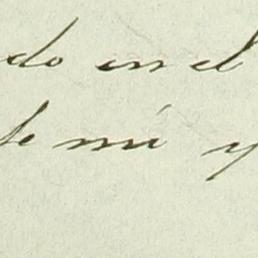 do en el
de mi y